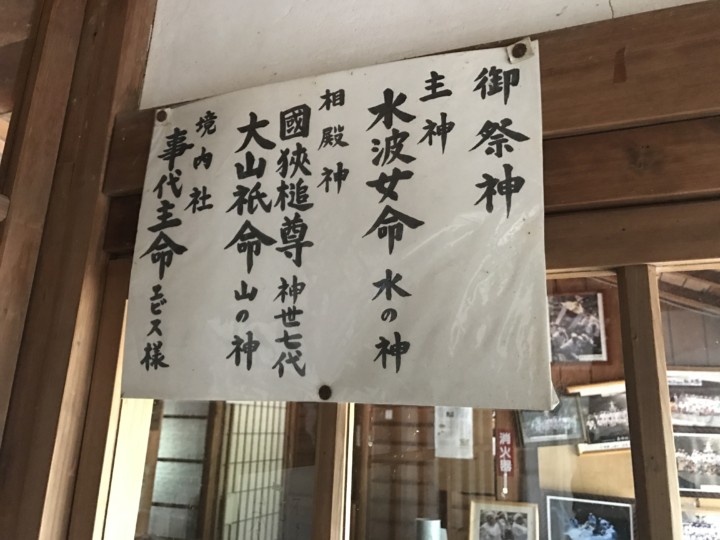 御祭神
主神
水波女命 水の神
相殿神
國狹槌尊 神世七代
大山祇命 山の神
境内社
事代主命 エビス様
消火器